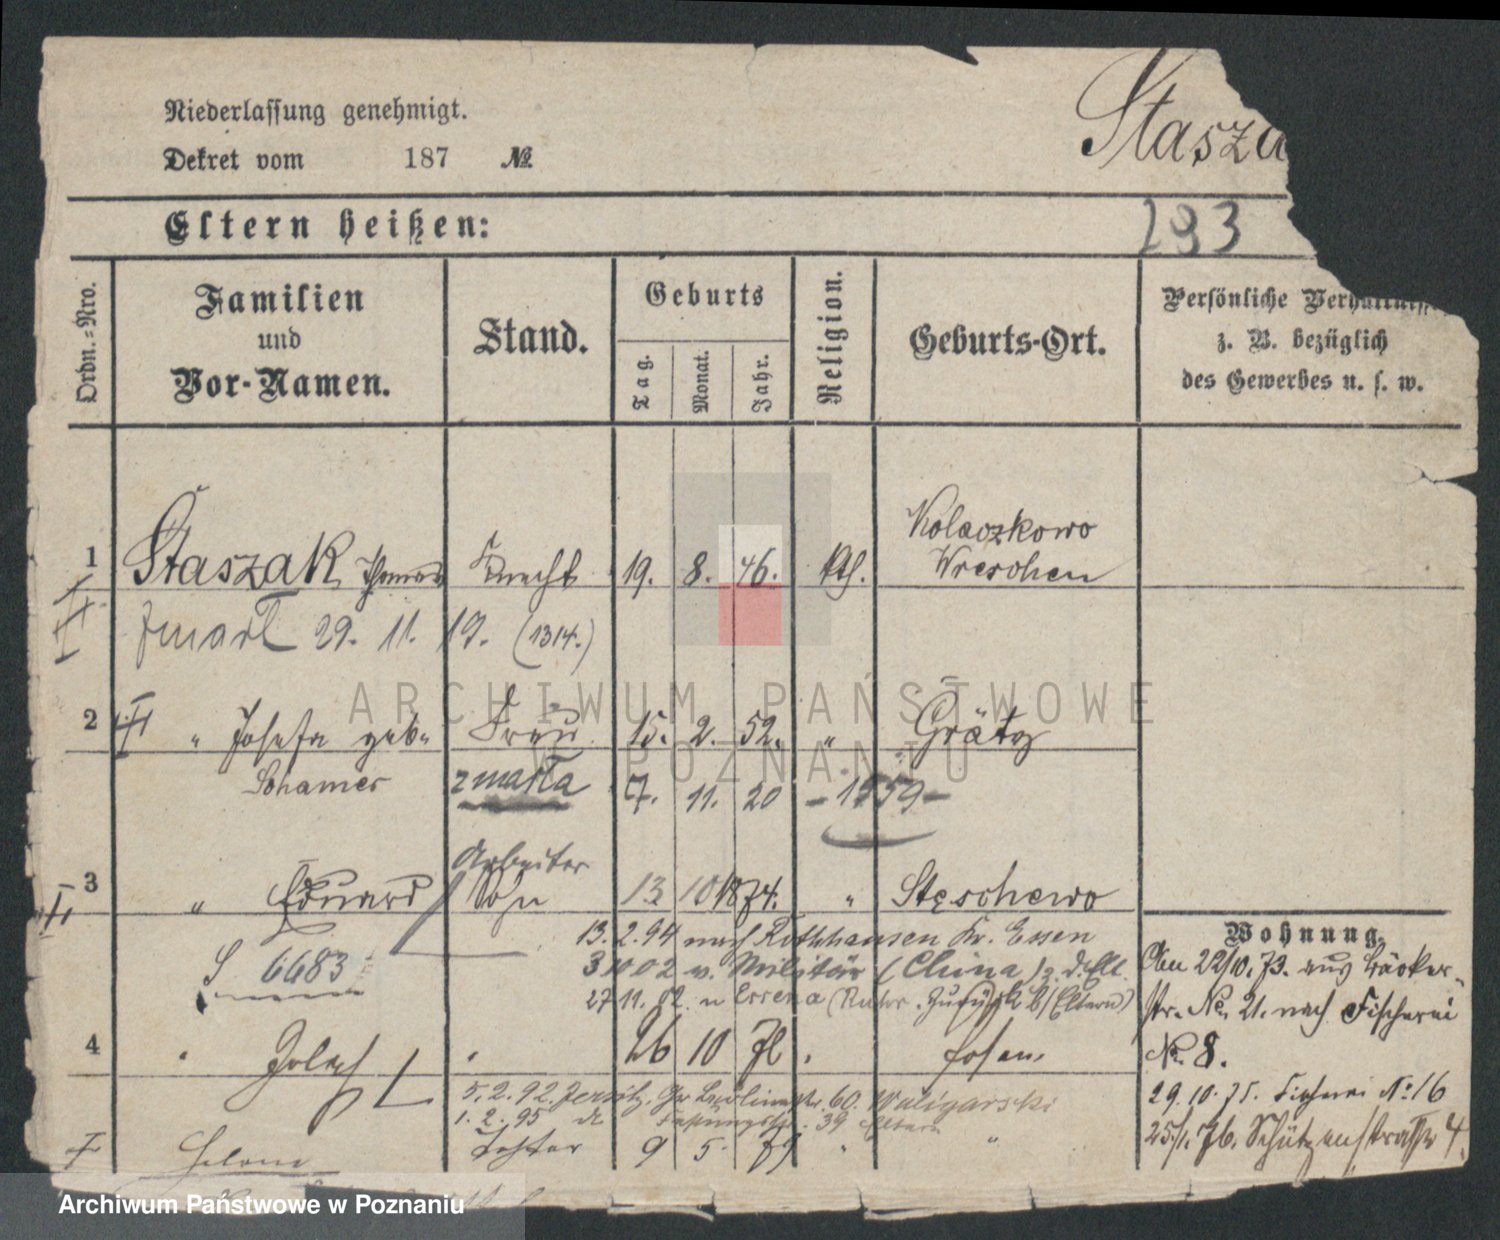 Niederlassung genehmigt.
Dekret vom 187 №
Stasza
Eltern heißen:
293
Ordn.-Nro.
Familien
und
Vor-Namen.
Stand.
Geburts
Tag.
Monat.
Jahr.
Religion.
Geburts-Ort.
Persönliche Verhältniss
z. B. bezüglich
des Gewerbes u. s. w.
1 Staszak Thomas Knecht 19. 8. 46. kth. Kolaczkowo
Wreschen
Zmarł 29. 11. 19. (1314.)
2 " Josefa geb. Frau 15. 2. 52. " Grätz
Schamer zmarła 7. 11. 20 - 1559 -
Arbeiter
3 " Eduard Sohn 13 10 1874. " Stęschewo
13. 2. 94 nach Rotthausen Kr. Essen
S 6683
3 10 02 v. Militär (China) z. d. Elt.
27 11. 02. v Essena (Ruhr. Zurück b/Eltern)
4 " Joseph " 26 10 76 " Posen
5. 2. 92. Jersitz, Gr. Berlinerstr. 60. Waligorski
1. 2. 95 39 Eltern
Helene Tochter 9 5. 79 " "
Wohnung.
Oben 22/10. 73. aus Bäcker-
str. No. 21. nach Fischerei
No. 8.
29. 10. 75. Fischerei No 16
25/1. 76. Schützenstraße 4.
ARCHIWUM PAŃSTWOWE
W POZNANIU
Archiwum Państwowe w Poznaniu